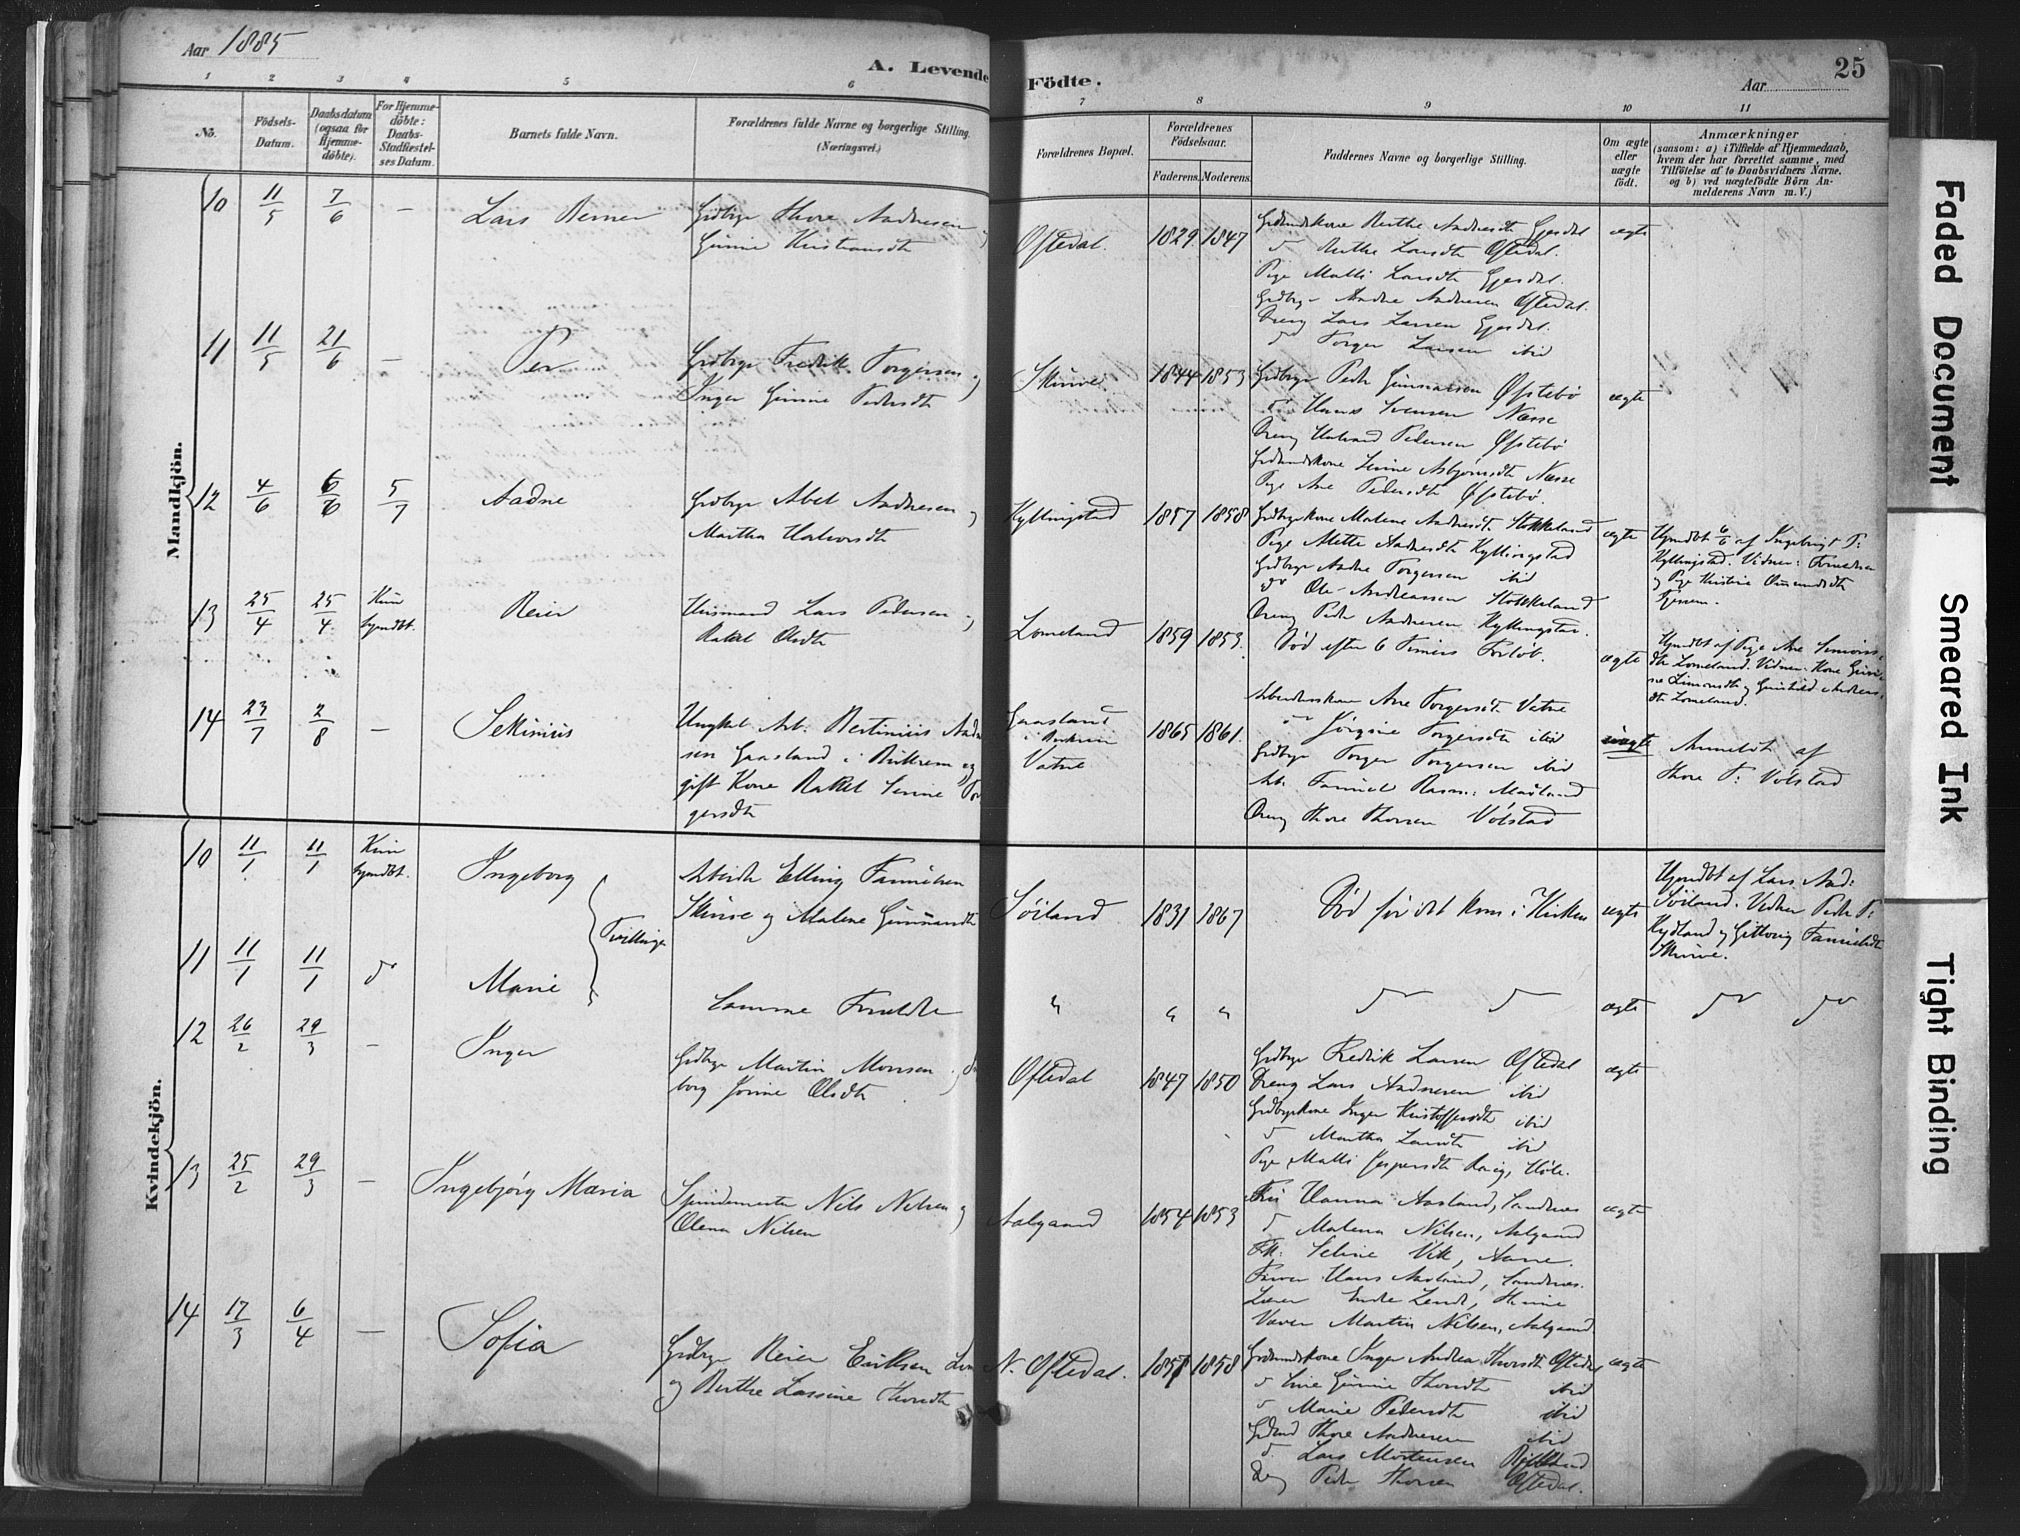 Aar 1885
A. Levende Födte.
Aar
25
1 2 3 4 5 6 7 8 9 10 11
No.
Födsels-Datum.
Daabsdatum (ogsaa for Hjemme-döbte).
For Hjemme-döbte: Daabs-Stadfæstel-ses Datum.
Barnets fulde Navn.
Forældrenes fulde Navne og borgerlige Stilling. (Næringsvei.)
Forældrenes Bopæl.
Forældrenes Födselsaar.
Faderens. Moderens.
Faddernes Navne og borgerlige Stilling.
Om ægte eller uægte födt.
Anmærkninger
(saasom: a) i Tilfælde af Hjemmedaab, hvem der har forrettet samme, med Tilföielse af to Daabsvidners Navne. og b) ved uægtefödte Börn An-melderens Navn m. V.)
Mandkjön.
10 11/5 7/6 — Lars Berner
Grdbrgr Thore Aadnesen og
Gunne Kristiansdt
Oftedal. 1829 1847
Grdmdskone Berthe Aadnesdt Gjesdal
do Berthe Larsdt Oftedal.
Pige Malli Larsdt Gjesdal.
Grdbrgr Aadne Aadnesen Oftedal.
Dreng Lars Larsen Gjesdal.
do Torger Larsen ibid
ægte
11 11/5 21/6 — Per
Grdbrgr Fredrik Torgersen og
Inger Gunne Pedersdt
Skurve 1844 1853
Grdbrgr Peder Gunnarsen Østebö
do Hans Svensen Næsse
Dreng Halvard Pedersen Østebö
Grdmdskone Serine Asbjörnsdt Næsse
Pige Ane Pedersdt Østebö.
ægte
12 4/6 6/6 5/7 Aadne
Grdbrgr Abel Aadnesen og
Martha Halvorsdt
Kyllingstad 1857 1858
Grdbrgrkone Malene Aadnesdt Stokkeland
Pige Mette Aadnesdt Kyllingstad
Grdbrgr Aadne Torgersen ibid
do Ole Andreassen Stokkeland
Dreng Peder Aadnesen Kyllingstad.
ægte
Hjemdbt 6/6 af Ingebrigt T:
Kyllingstad. Vidner: Forældrene
og Pige Kristine Omundsdt
13 25/4 25/4 Kun hjemdbt. Reier
Husmand Lars Pedersen og
Rakel Olsdt
Lomeland 1859 1853.
Död efter 6 Timers Forlöb.
ægte
Hjemdbt af Pige Ane Simons-
dt Lomeland. Vidner: Kone Guri-
ne Simonsdt og Gunhild Andreas-
dt Lomeland.
14 23/7 2/8 — Sekinius
Ungkel Arb: Bertinius Aadne
sen Gaasland i Birkrem og
gift Kone Rakel Serine Tor
gersdt
Gaasland
i Birkrem
Vatne
1865 1861.
Arbeiderskone Ane Torgersdt Vatne
do Jörgine Torgersdt ibid
Grdbrgr Torger Torgersen ibid
Arb: Tønnes Rasm: Madland
Dreng Thore Thorsen Volstad
uægte
Anmeldt af
Thore T: Volstad
Kvindekjön.
10 11/1 11/1 Kun hjemdbt. Ingeborg
Tvillinger
Arbeider Elling Tønnesen
Skurve og Malene Gunnarsdt
Söiland 1831 1867
Död för det kom i Kirken
ægte
Hjemdbt af Lars Aad:
Söiland. Vidner Peder T:
Kydland og Gittorig Tønnesdt
Skurve.
11 11/1 11/1 do Marie
Samme Forældre
" " " do do ægte do do
12 26/2 29/3 — Inger
Grdbrgr Martin Monsen og In
borg Jorine Olsdt
Oftedal 1847 1850
Grdbrgr Fredrik Larsen Oftedal
Dreng Lars Aadnesen ibid
Grdbrgrkone Inger Kristoffersdt ibid
do Martha Larsdt ibid
Pige Malli Jespersdt Röig, Höle.
ægte
13 25/2 29/3 — Ingebjörg Maria
Spindemester Nils Nilsen og
Olena Nilsen
Aalgaard 1854 1853
Fru Hanna Aasland, Sandnes
do Malena Nilsen, Aalgaard
Frk: Seline Vik, Aarre.
Farver Hans Aasland, Sandnes.
Lærer Endre Lende, Thime
Væver Martin Nilsen, Aalgaard
ægte
14 17/3 6/4 — Sofia
Grdbrgr Reier Eriksen
og Berthe Lassine Thorsdt
N. Oftedal. 1857 1858
Grdmdskone Inger Andrea Thorsdt Oftedal
do Sine Gunne Thorsdt ibid
do Marie Pedersdt ibid
Grdmd Thore Aadnesen ibid
do Lars Mortensen
Dreng Peder Thorsen Oftedal.
ægte
Faded Document
Smeared Ink
Tight Binding